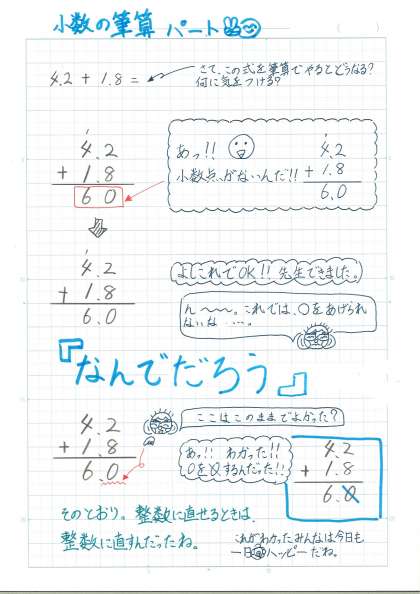 小数の筆算 パート✌
4.2 + 1.8 =
さて、この式を筆算でやるとどうなる?
何に気をつける?
1
4.2
+ 1.8
60
あっ!!
小数点がないんだ!!
1
4.2
+ 1.8
6.0
1
4.2
+ 1.8
6.0
よしこれでOK!! 先生できました。
ん〜〜〜。これでは、○をあげられ
ないな・・・。
『なんでだろう』
4.2
+ 1.8
6.0
ここはこのままでよかった?
あっ!! わかった!!
0を0するんだった!!
4.2
+ 1.8
6.0
そのとおり。整数に直せるときは、
整数に直すんだったね。
これがわかったみんなは今日も
一日ハッピーだね。